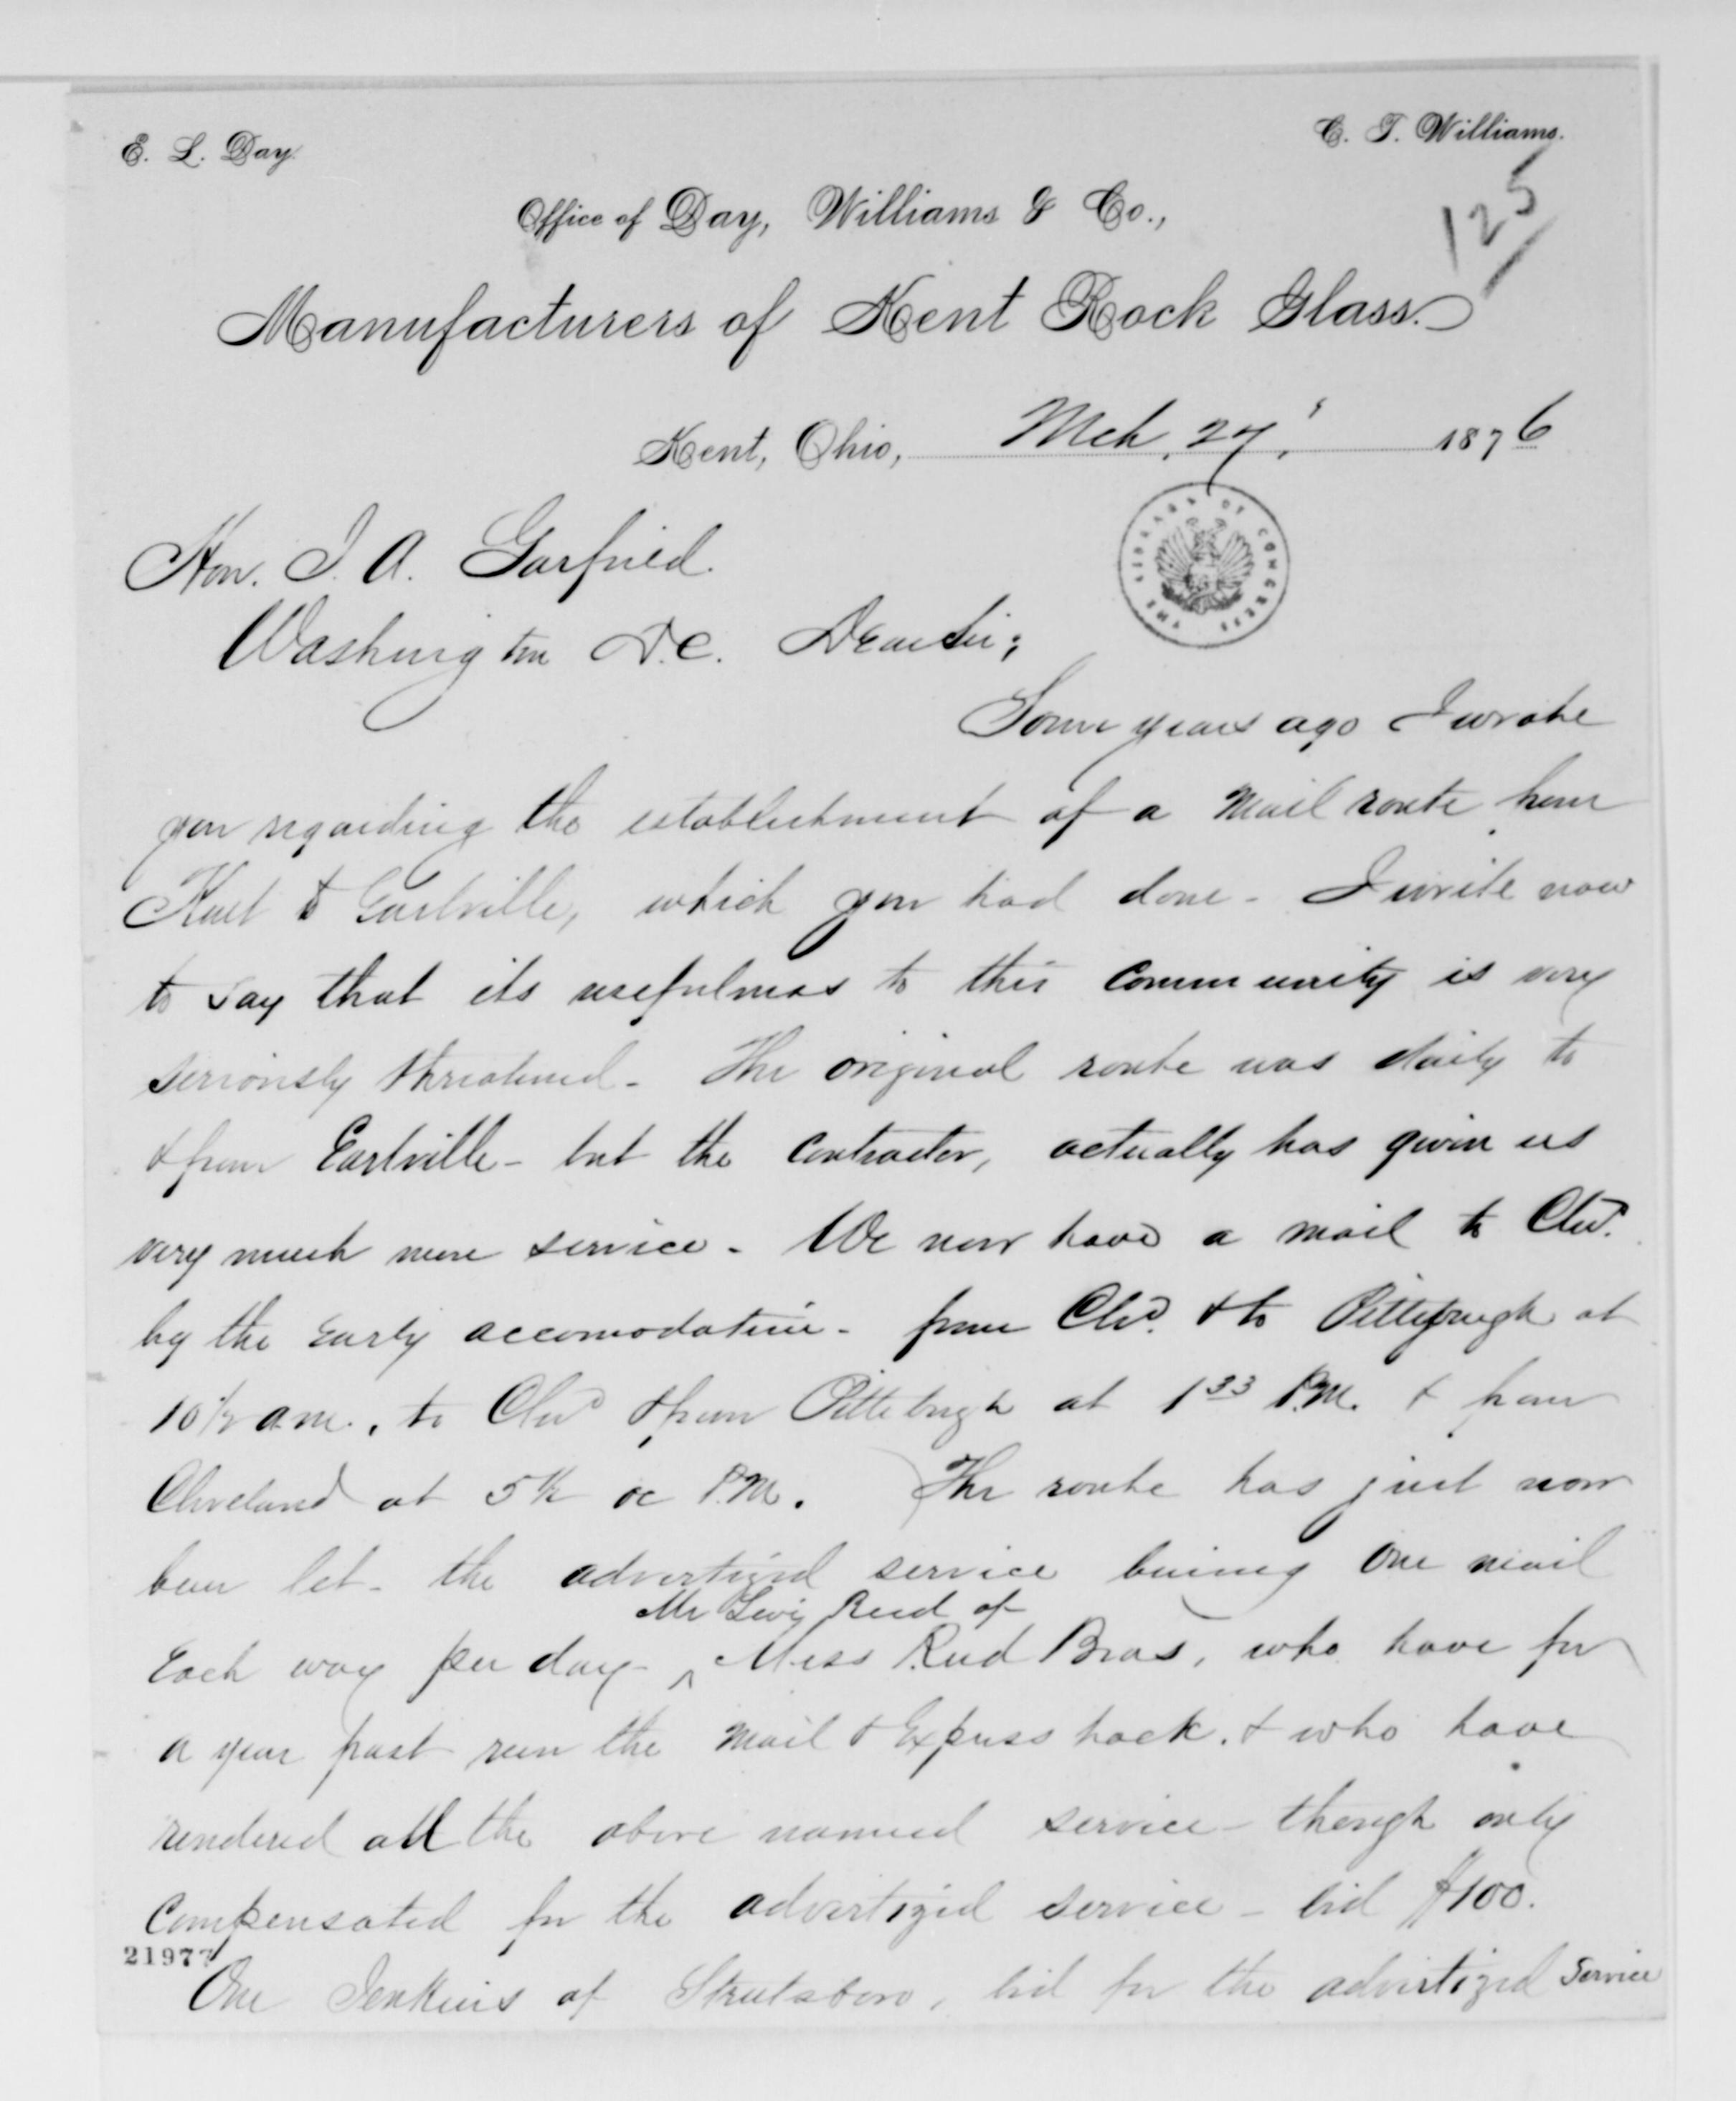 E. L. Day.
C. T. Williams.
125
Office of Day, Williams & Co.,
Manufacturers of Kent Rock Glass.
Kent, Ohio, Mch. 27' 1876
THE LIBRARY OF CONGRESS
Hon. J. A. Garfield.
Washington D.C. Dear Sir;
Some years ago I wrote
you regarding the establishment of a Mail route from
Kent to Earlville, which you had done - I write now
to say that its usefulness to this community is very
seriously threatened - The original route was daily to
& from Earlville - but the contractor, actually has given us
very much more service - We now have a mail to Clevd.
by the early accomodation - from Clevd. & to Pittsburgh at
10 1/2 a.m., to Clevd & from Pittsburgh at 1 33 P.M. & from
Cleveland at 5 1/2 oc P.M. The route has just now
been let - the advertized service being One mail
Mr Levi Reed of
Each way per day - ^ Mess Reed Bros, who have for
a year past run the Mail & Express hack, & who have
rendered all the above named service - though only
Compensated for the advertized service - bid $100.
21977
One Jenkins of Streetsboro, bid for the advertized Service